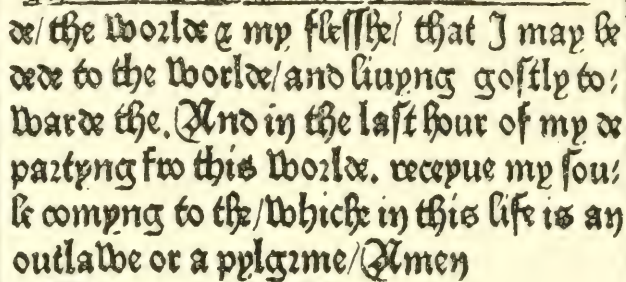 de/ the worlde & my flesshe/ that I may be
dede to the worlde/ and liuyng gostly to:
warde the. And in the last hour of my de
partyng fro this worlde. receyue my sou:
le comyng to the/ whiche in this life is an
outlawe or a pylgrime/ Amen